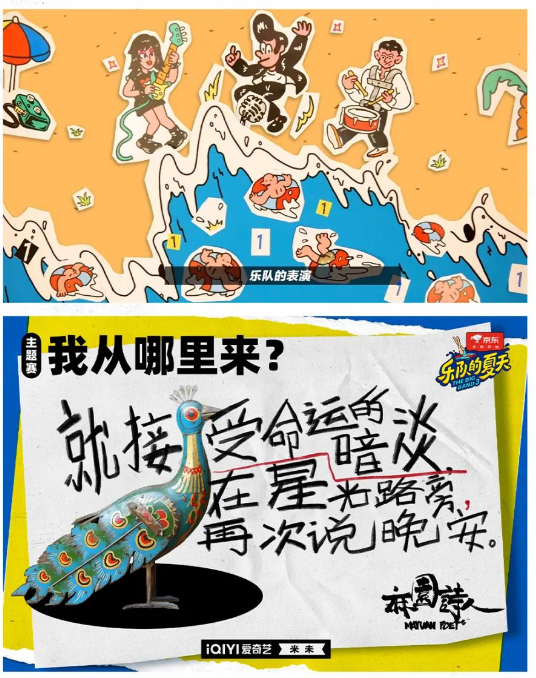 M
1
1
1
1
1
乐队的表演
主题赛
我从哪里来?
京东
乐队的夏天
THE BIG BAND 3
就接受命运的暗淡
在星光路旁,
再次说晚安。
麻园诗人
MAYUAN POET
iQIYI 爱奇艺 米未